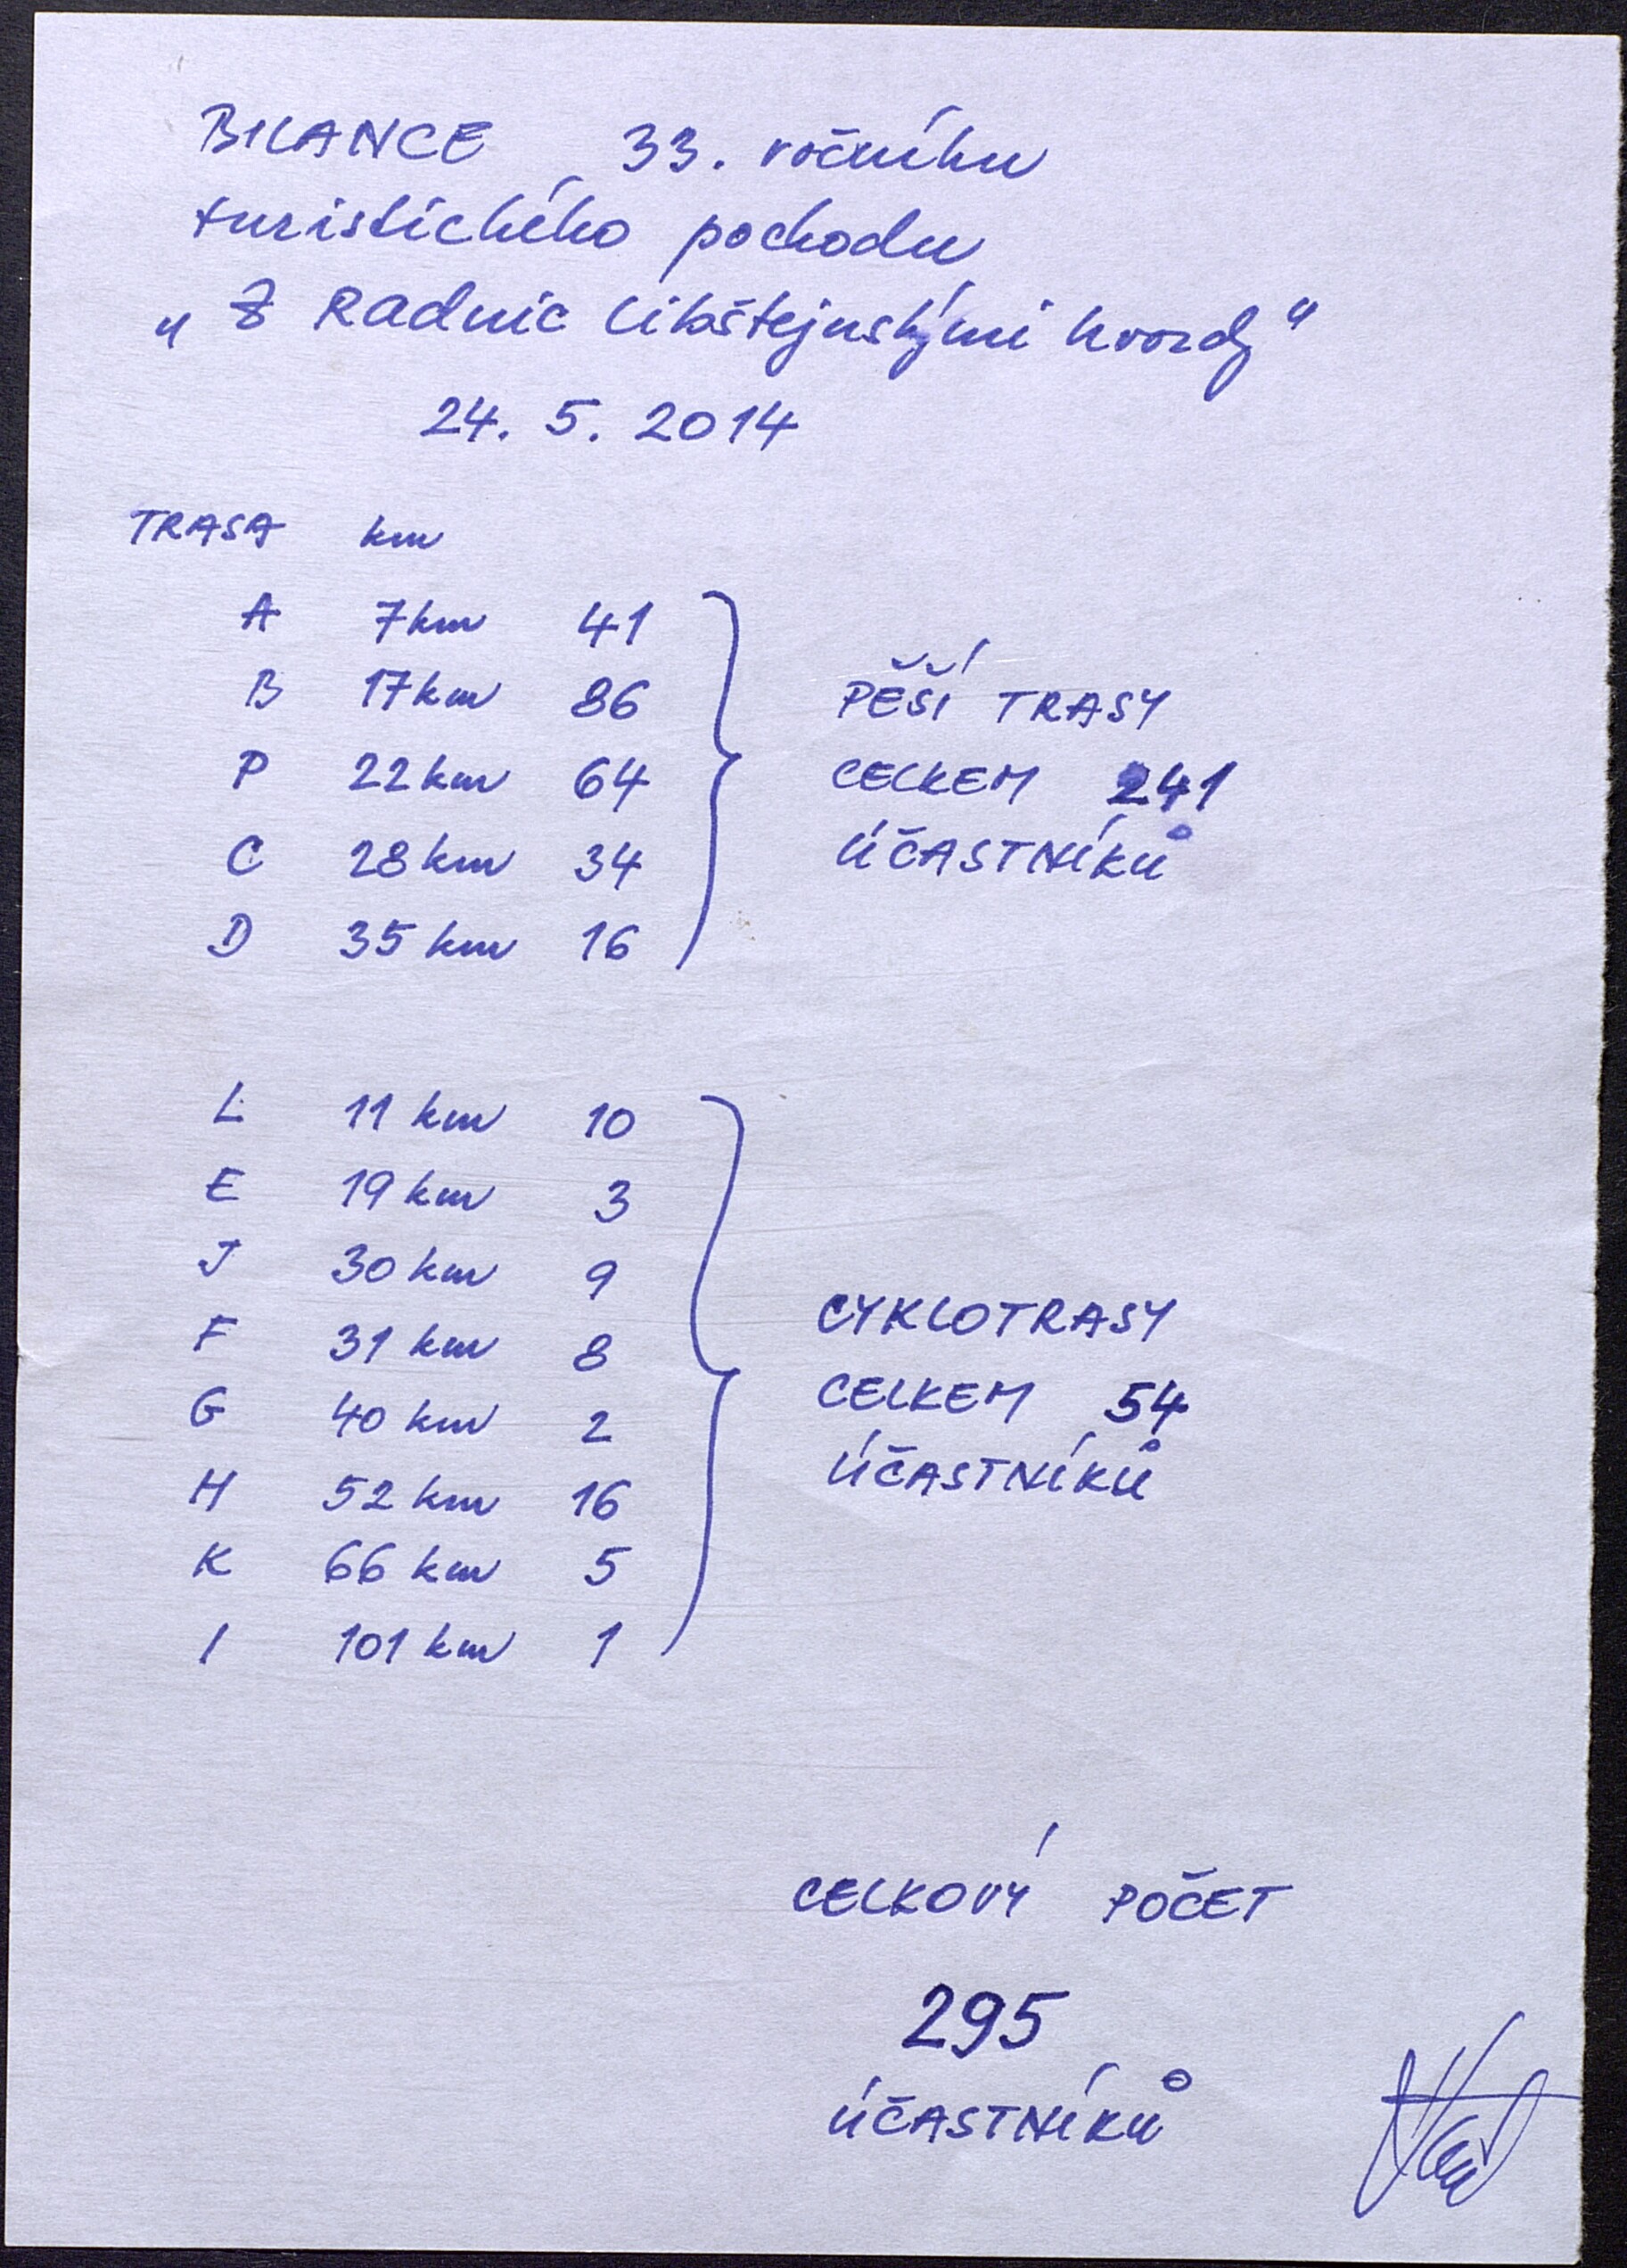 BILANCE 33. ročníku
turistického pochodu
„Z Radnic libštejnskými hvozdy“
24. 5. 2014
TRASA km
A 7km 41
B 17km 86
P 22km 64
C 28km 34
D 35km 16
PĚŠÍ TRASY
CELKEM 241
ÚČASTNÍKŮ
L 11 km 10
E 19 km 3
J 30 km 9
F 31 km 8
G 40 km 2
H 52 km 16
K 66 km 5
I 101 km 1
CYKLOTRASY
CELKEM 54
ÚČASTNÍKŮ
CELKOVÝ POČET
295
ÚČASTNÍKŮ